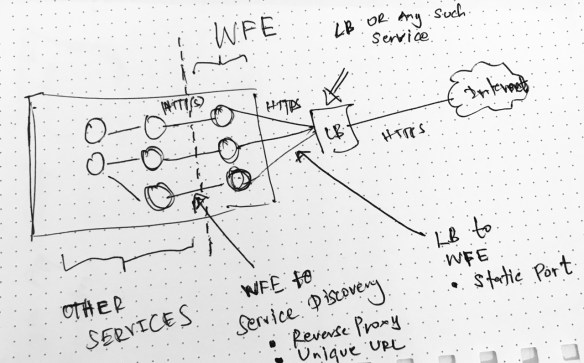 WFE
LB OR Any such
Service
HTTP(S)
HTTPS
LB
HTTPS
Internet
OTHER
SERVICES
WFE to
Service Discovery
• Reverse Proxy
• Unique URL
LB to
WFE
• Static Port